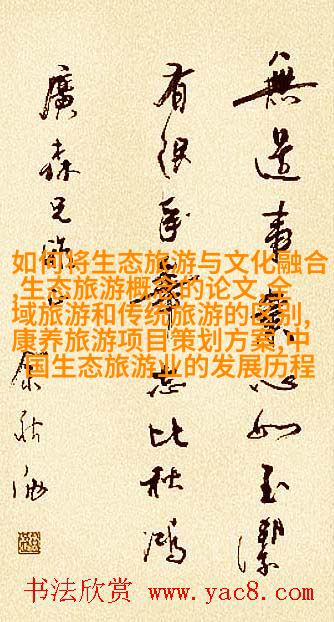 無邊事業心如玉潔
有限年華志比秋鴻
廣森兄正
余秋雨
如何将生态旅游与文化融合
,生态旅游概念的论文,全
域旅游和传统旅游的区别,
康养旅游项目策划方案,中
国生态旅游业的发展历程
书法欣赏 www.yac8.com